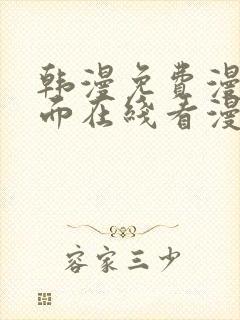 韩漫免费漫
而在线看漫
容家三少